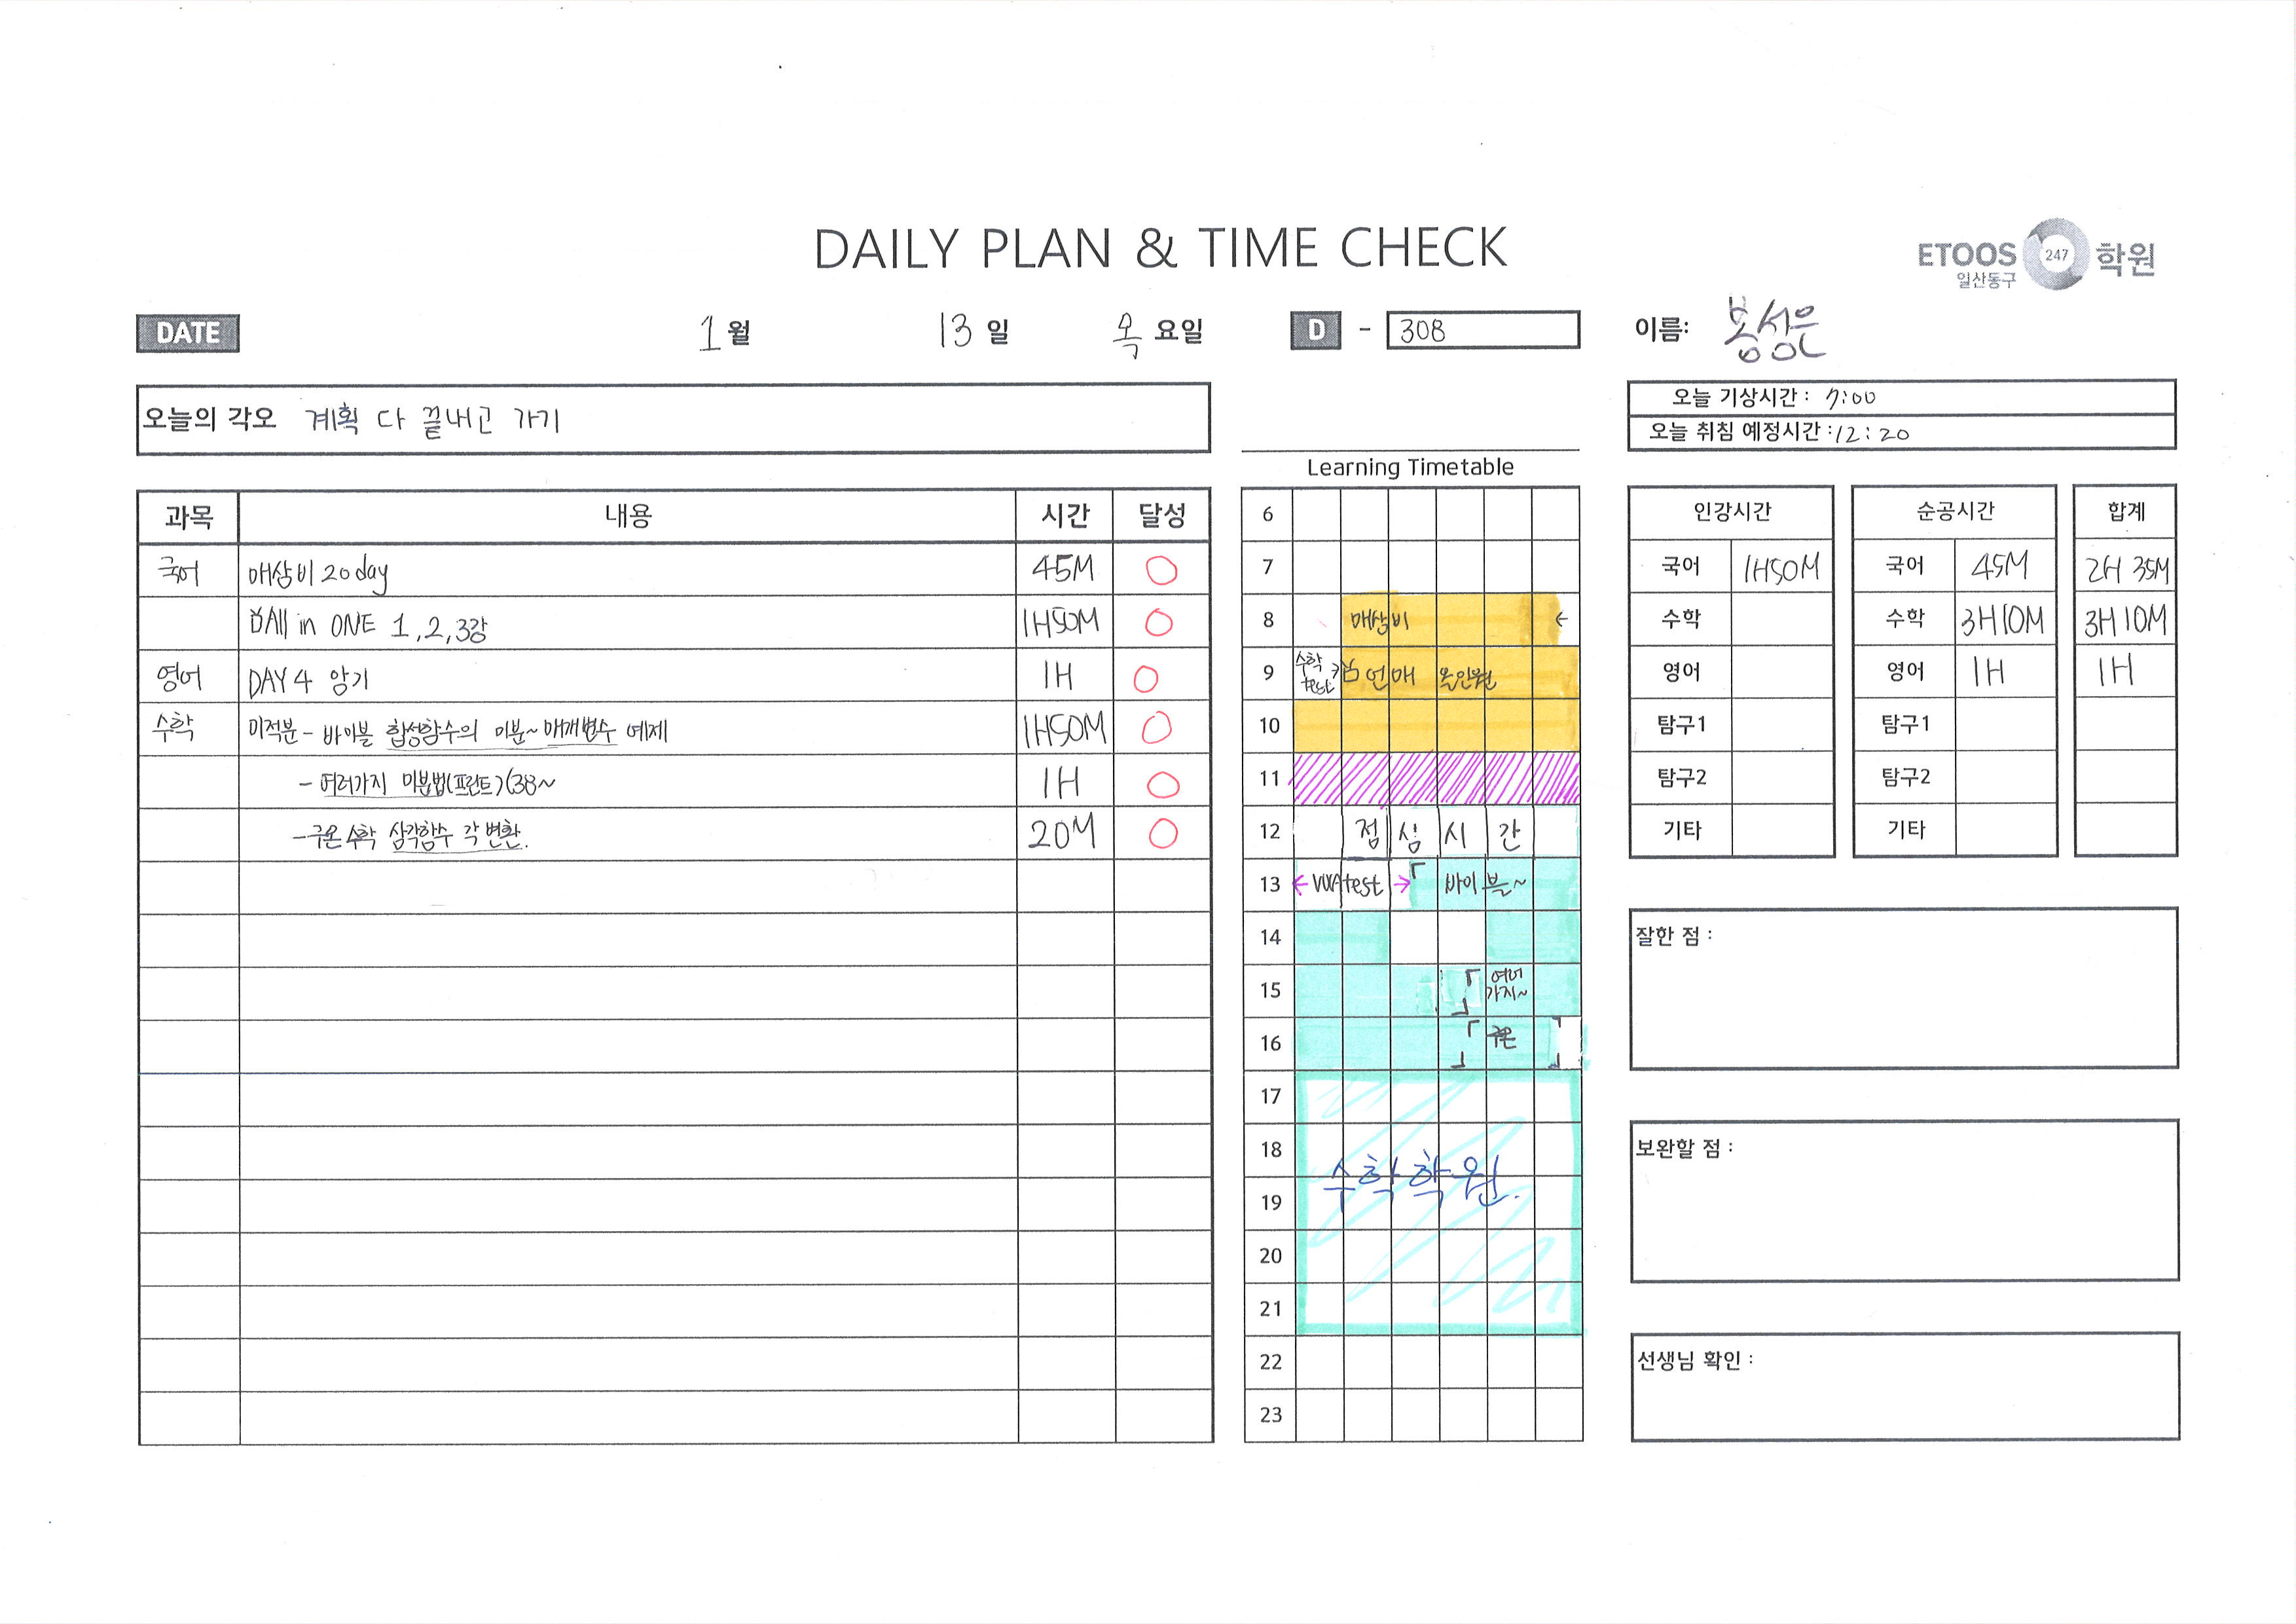 DAILY PLAN & TIME CHECK
ETOOS 247 학원
일산동구
DATE 1월 13일 목요일 D - 308 이름: 봉성은
오늘의 각오 계획 다 끝내고 가기
오늘 기상시간 : 7:00
오늘 취침 예정시간 : 12:20
Learning Timetable
과목 내용 시간 달성
국어 매삼비 20day 45M ○
All in ONE 1,2,3강 1H50M ○
영어 DAY4 암기 1H ○
수학 미적분 - 바이블 합성함수의 미분~매개변수 예제 1H50M ○
- 여러가지 미분법(프린트)(38~ 1H ○
- 구온수학 삼각함수 각 변환. 20M ○
6
7
8 매삼비 ←
9 수학 test 언매 올인원
10
11
12 점심시간
13 ← test → 바이블~
14
15 여러가지~
16 구온
17
18
수학학원.
19
20
21
22
23
인강시간 순공시간 합계
국어 1H50M 국어 45M 2H 35M
수학 수학 3H10M 3H10M
영어 영어 1H 1H
탐구1 탐구1
탐구2 탐구2
기타 기타
잘한 점 :
보완할 점 :
선생님 확인 :